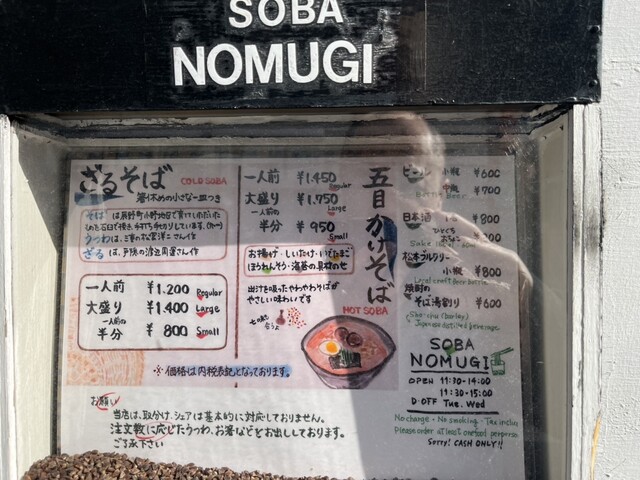 SOBA
NOMUGI
ざるそば COLD SOBA
箸休めの小さな一皿つき
うつわは、三春の松宮洋二さん作
ざるは、戸隠の渡辺周運さん作
一人前 ¥1,200 Regular
大盛り ¥1,400 Large
一人前の
半分 ¥800 Small
一人前 ¥1,450 Regular
大盛り ¥1,750 Large
一人前の
半分 ¥950 Small
五目かけそば
HOT SOBA
お揚げ・しいたけ・いてたまご
ほうれんそう・海苔の具材のせ
出汁を吸ったやわやわそばが
やさしい味わいです
※価格は内税表記となっております。
お願い
当店は、取分け、シェアは基本的に対応しておりません。
注文数に応じたうつわ、お箸などをお出ししております。
ご了承下さい
ビール 小瓶 ¥600
中瓶 ¥700
Bottle Beer
日本酒 ¥800
Sake
松本ブルワリー
小瓶 ¥800
Local craft Beer Bottle
焼酎の
そば湯割り ¥600
Sho-chu (barley)
Japanese distilled beverage
SOBA
NOMUGI
OPEN 11:30-14:00
11:30-15:00
D.OFF Tue. Wed
No charge・No smoking・Tax inclu
Please order at least one
Sorry! CASH ONLY!!